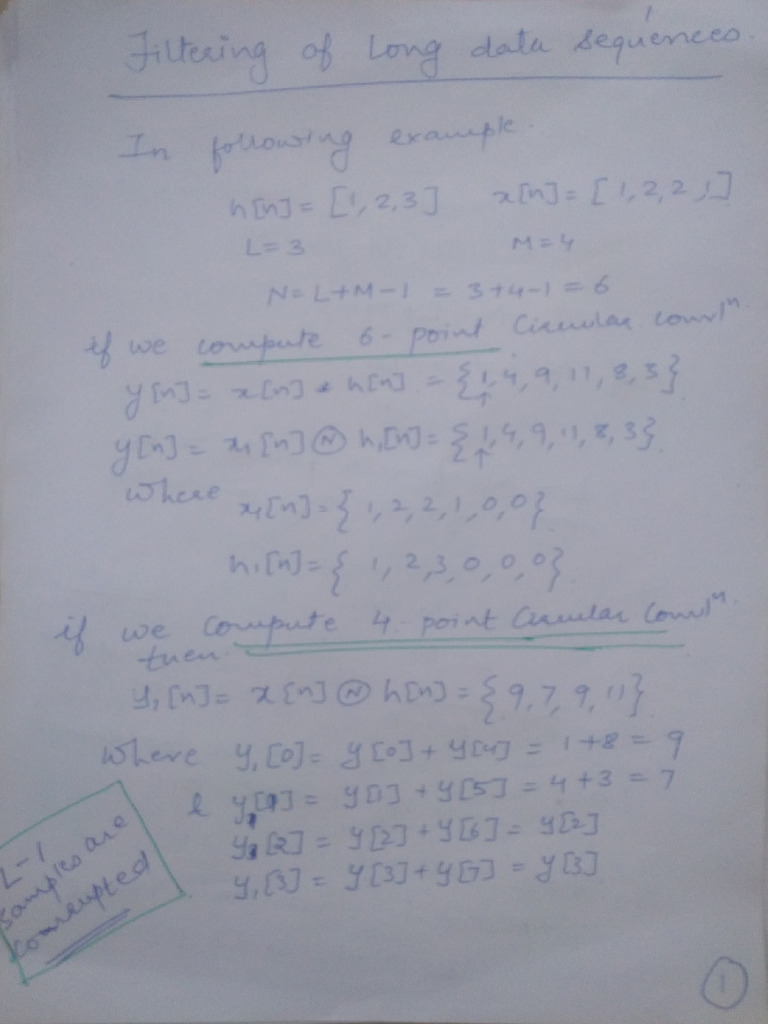 Filtering of Long data sequences.
In following example.
h[n] = [1, 2, 3] x[n] = [1, 2, 2, 1]
L = 3 M = 4
N = L+M-1 = 3+4-1 = 6
if we compute 6-point Circular convlⁿ.
y[n] = x[n] * h[n] = {1, 4, 9, 11, 8, 3}
↑
y[n] = x₁[n] Ⓝ h₁[n] = {1, 4, 9, 11, 8, 3}
↑
where
x₁[n] = { 1, 2, 2, 1, 0, 0}
h₁[n] = { 1, 2, 3, 0, 0, 0}
if we compute 4-point Circular Convlⁿ.
then
y₁[n] = x[n] Ⓝ h[n] = {9, 7, 9, 11}
where y₁[0] = y[0] + y[4] = 1+8 = 9
& y₁[1] = y[1] + y[5] = 4+3 = 7
y₁[2] = y[2] + y[6] = y[2]
y₁[3] = y[3] + y[7] = y[3]
L-1
samples are
corrupted
1